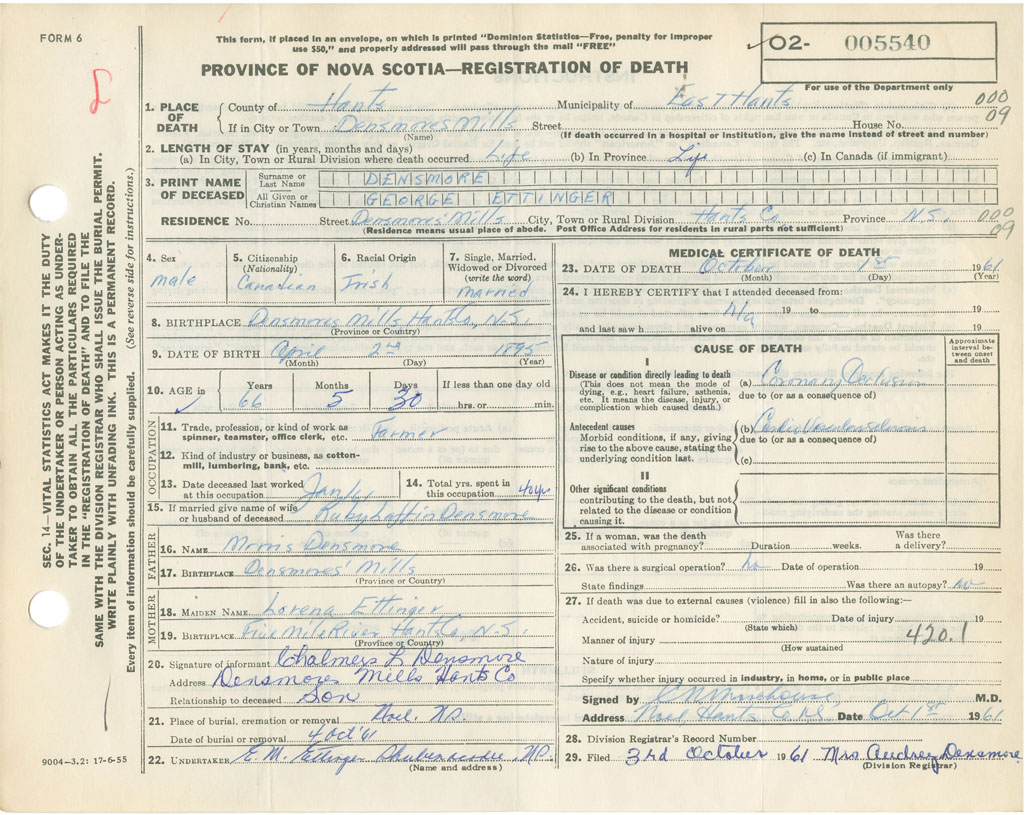 FORM 6
This form, if placed in an envelope, on which is printed "Dominion Statistics—Free, penalty for improper
use $50," and properly addressed will pass through the mail "FREE"
PROVINCE OF NOVA SCOTIA—REGISTRATION OF DEATH
02- 005540
For use of the Department only
SEC. 14—VITAL STATISTICS ACT MAKES IT THE DUTY
OF THE UNDERTAKER OR PERSON ACTING AS UNDER-
TAKER TO OBTAIN ALL THE PARTICULARS REQUIRED
IN THE "REGISTRATION OF DEATH" AND TO FILE THE
SAME WITH THE DIVISION REGISTRAR WHO SHALL ISSUE THE BURIAL PERMIT.
WRITE PLAINLY WITH UNFADING INK. THIS IS A PERMANENT RECORD.
Every item of information should be carefully supplied. (See reverse side for instructions.)
1. PLACE OF DEATH
County of Hants Municipality of East Hants 000
If in City or Town Densmores Mills Street House No. 09
(Name) (If death occurred in a hospital or institution, give the name instead of street and number)
2. LENGTH OF STAY (in years, months and days)
(a) In City, Town or Rural Division where death occurred Life (b) In Province Life (c) In Canada (if immigrant)
3. PRINT NAME OF DECEASED
Surname or Last Name DENSMORE
All Given or Christian Names GEORGE ETTINGER
RESIDENCE No. Street Densmores' Mills City, Town or Rural Division Hants Co Province N.S. 000
(Residence means usual place of abode. Post Office Address for residents in rural parts not sufficient) 09
4. Sex male
5. Citizenship (Nationality) Canadian
6. Racial Origin Irish
7. Single, Married, Widowed or Divorced (write the word) married
8. BIRTHPLACE Densmores Mills HantsCo, N.S.
(Province or Country)
9. DATE OF BIRTH April 2nd 1895
(Month) (Day) (Year)
10. AGE in Years Months Days If less than one day old
66 5 30 hrs. or min.
OCCUPATION
11. Trade, profession, or kind of work as
spinner, teamster, office clerk, etc. Farmer
12. Kind of industry or business, as cotton-
mill, lumbering, bank, etc.
13. Date deceased last worked
at this occupation Jan/61
14. Total yrs. spent in
this occupation 40 yrs
15. If married give name of wife
or husband of deceased Ruby Laffin Densmore
FATHER
16. NAME Morris Densmore
17. BIRTHPLACE Densmores' Mills
(Province or Country)
MOTHER
18. MAIDEN NAME Lorena Ettinger
19. BIRTHPLACE Five Mile River HantsCo, N.S.
(Province or Country)
20. Signature of informant Chalmers L Densmore
Address Densmores Mills Hants Co
Relationship to deceased Son
21. Place of burial, cremation or removal Noel. N.S.
Date of burial or removal 4 Oct '61
22. UNDERTAKER E. M. Ettinger Shubenacadie, N.S.
(Name and address)
9004—3.2: 17-6-55
MEDICAL CERTIFICATE OF DEATH
23. DATE OF DEATH October 1st 1961
(Month) (Day) (Year)
24. I HEREBY CERTIFY that I attended deceased from:
N/a 19 to 19
and last saw h alive on 19
CAUSE OF DEATH
Approximate interval between onset and death
I
Disease or condition directly leading to death
(This does not mean the mode of
dying, e.g., heart failure, asthenia,
etc. It means the disease, injury, or
complication which caused death.)
(a) Coronary Occlusion
due to (or as a consequence of)
Antecedent causes
Morbid conditions, if any, giving
rise to the above cause, stating the
underlying condition last.
(b) Cardio Vascular
due to (or as a consequence of)
(c)
II
Other significant conditions
contributing to the death, but not
related to the disease or condition
causing it.
25. If a woman, was the death Was there
associated with pregnancy? Duration weeks. a delivery?
26. Was there a surgical operation? No Date of operation 19
State findings Was there an autopsy? No
27. If death was due to external causes (violence) fill in also the following:—
Accident, suicide or homicide? Date of injury 19
(State which)
Manner of injury 420.1
(How sustained
Nature of injury
Specify whether injury occurred in industry, in home, or in public place
Signed by M.D.
Address Noel Hants Co N.S. Date Oct 1st 1961
28. Division Registrar's Record Number
29. Filed 3rd October 1961 Mrs Audrey Densmore
(Division Registrar)